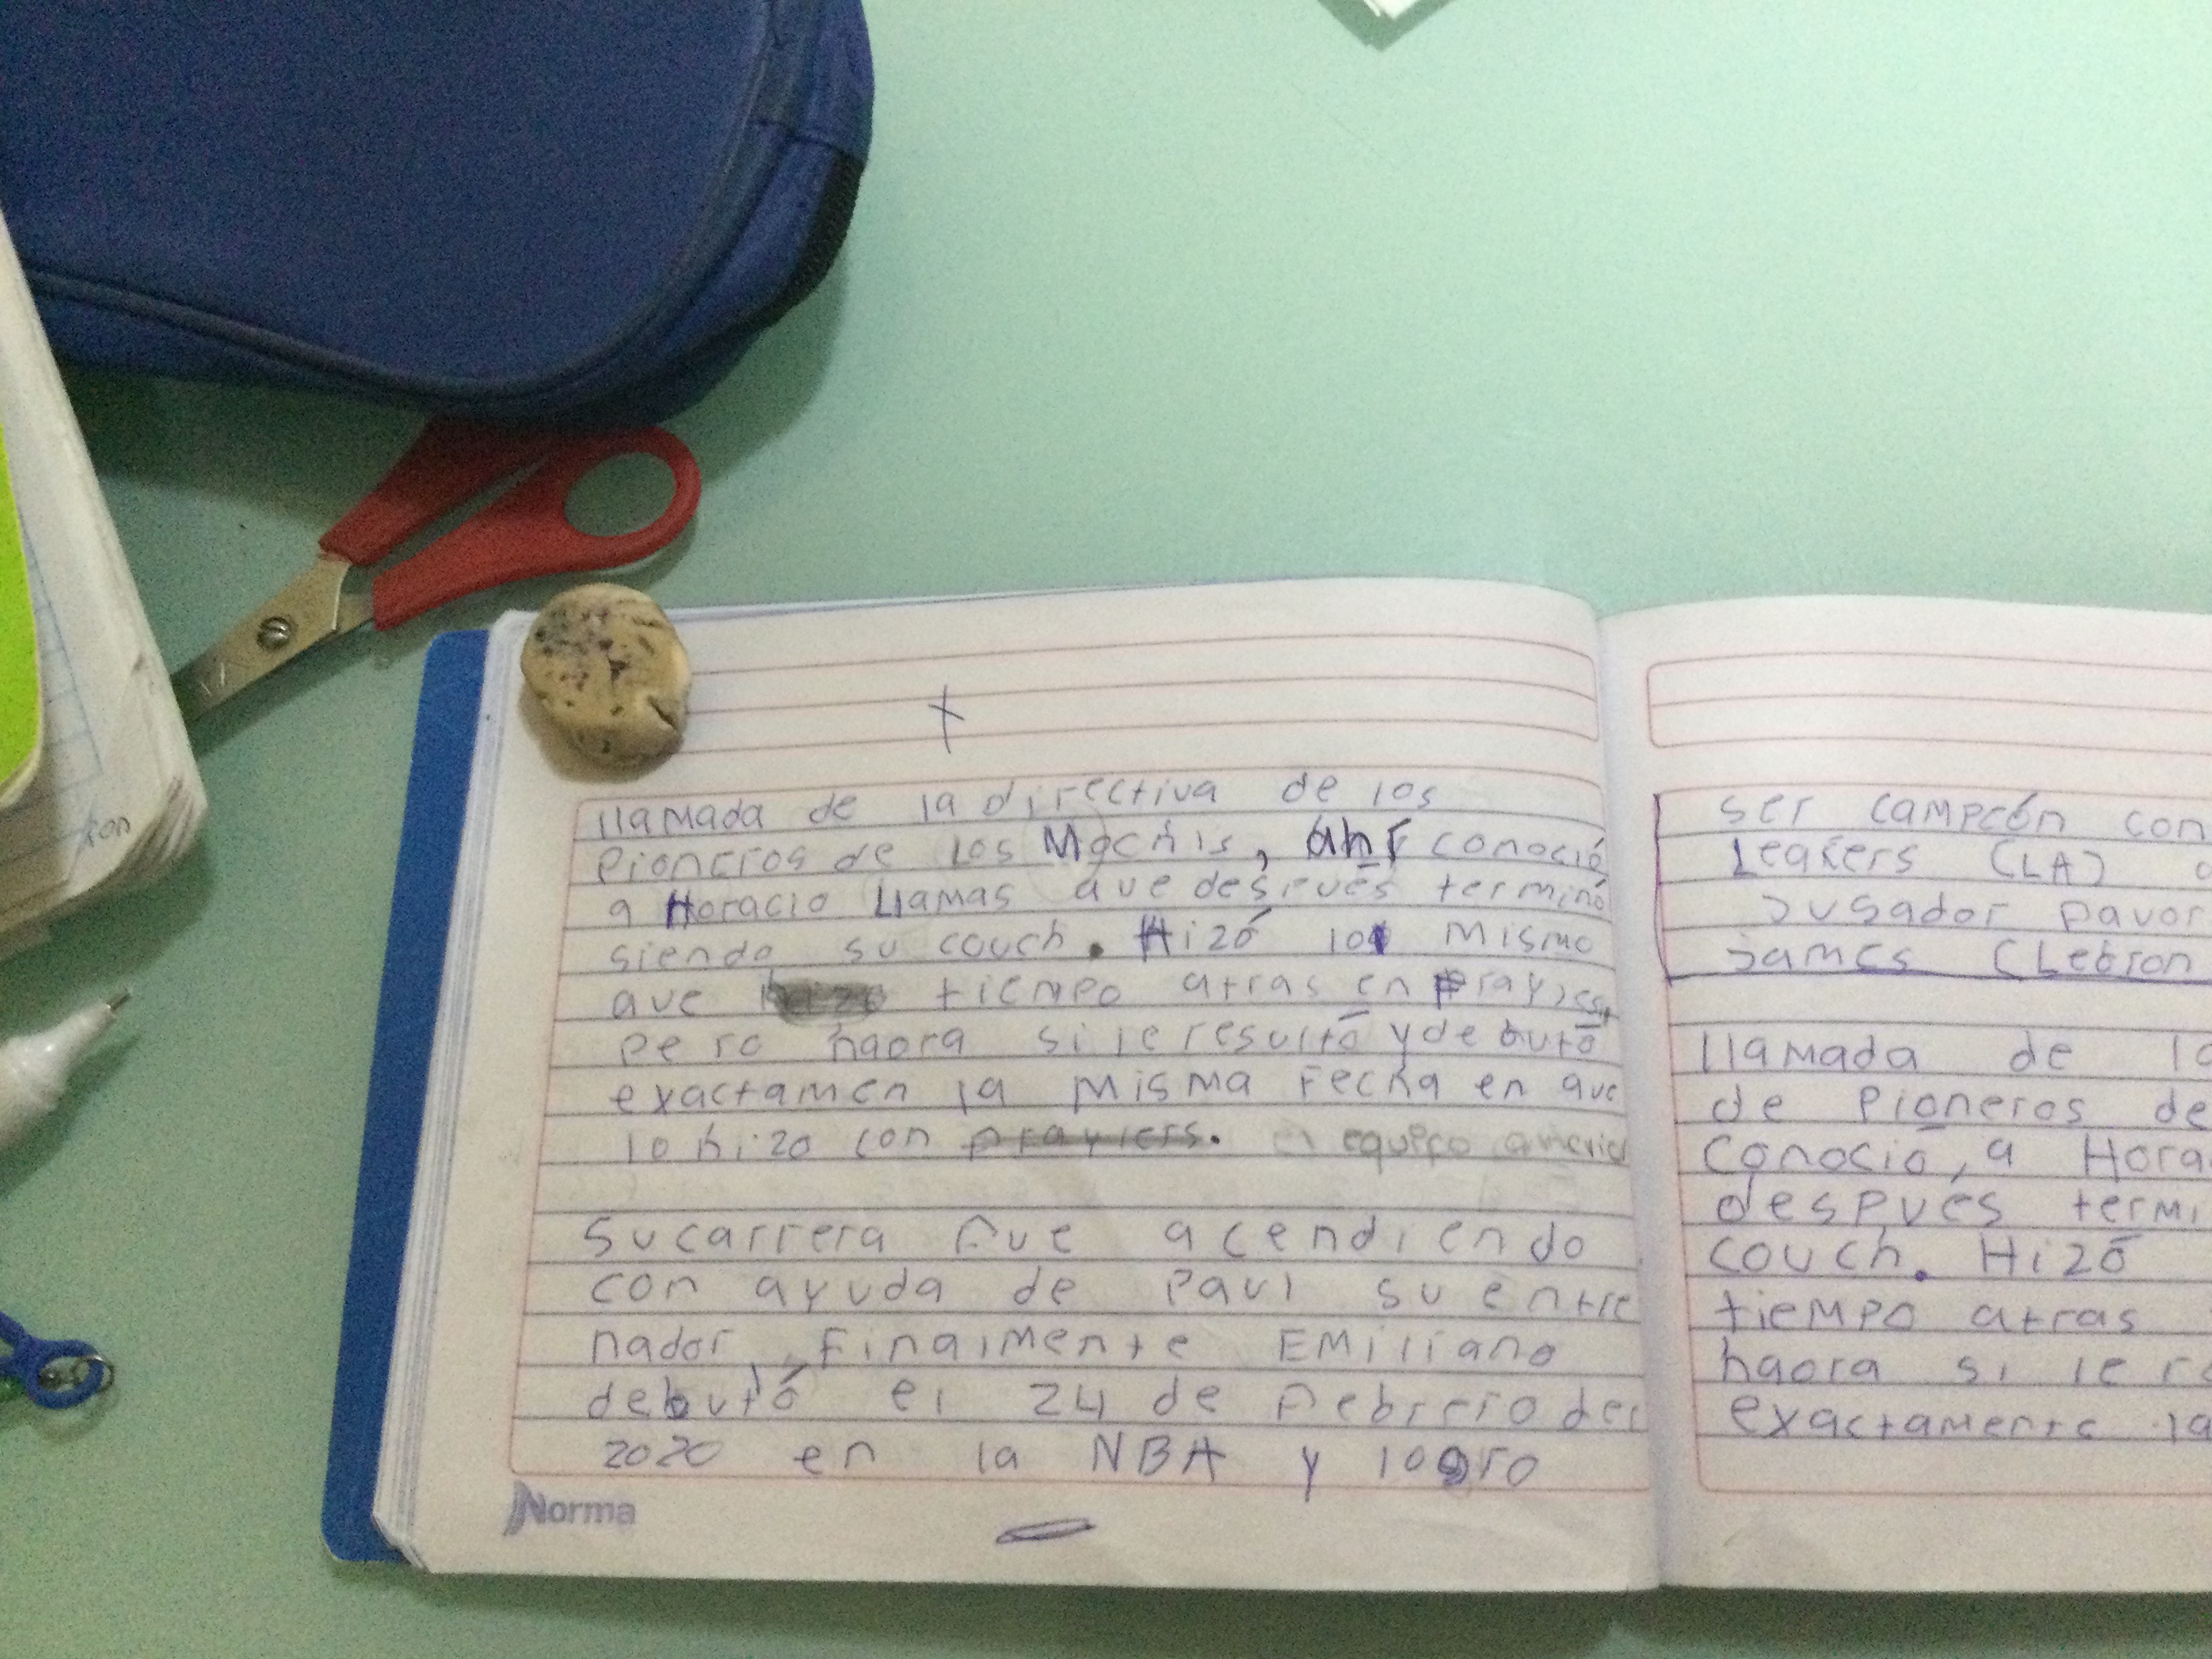 llamada de la directiva de los
Pioneros de Los Mochis, ahí conoció
a Horacio Llamas que después terminó
siendo su couch. Hizó lo mismo
que hizo tiempo atras en
pero haora si le resultó y debutó
exactamen la misma Fecha en que
lo hizo con prayiers. el equipo americ
Su carrera fue acendiendo
con ayuda de Paul su entre
nador, Finalmente Emiliano
debutó el 24 de febrero del
2020 en la NBA y logro
Norma
ser campeón con
Leakers (LA)
Jugador favor
James (Lebron
llamada de la
de Pioneros de
Conosió, a Hora
después termi
couch. Hizó
tiempo atras
haora si le re
exactamente la
ion